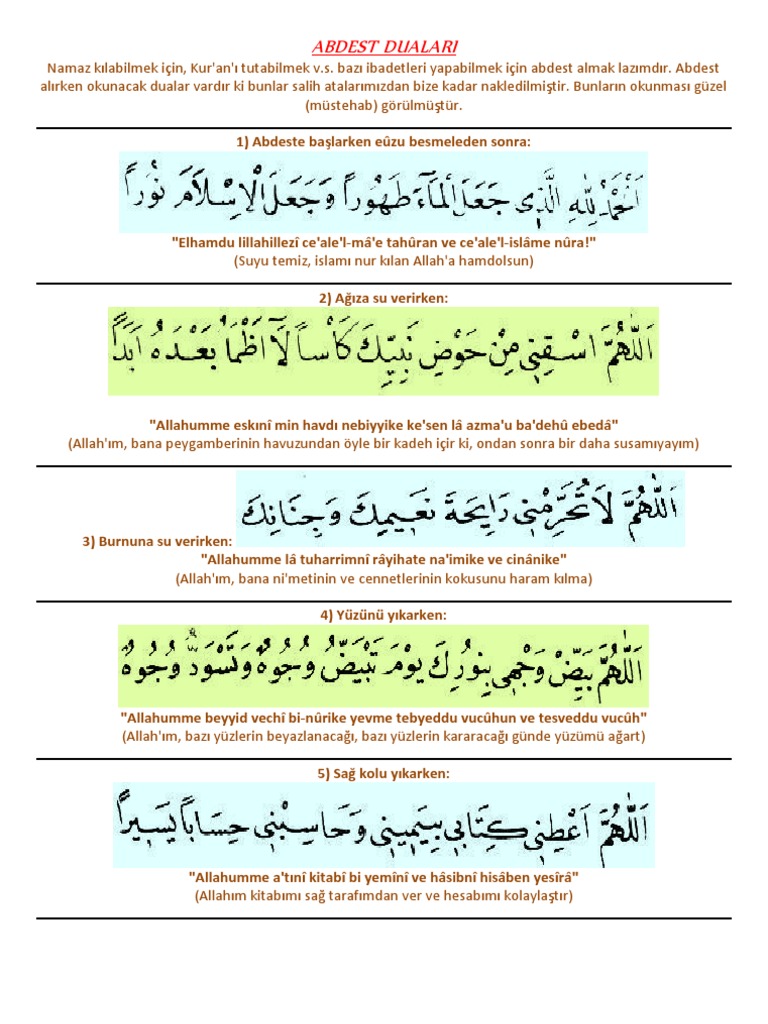 ABDEST DUALARI
Namaz kılabilmek için, Kur'an'ı tutabilmek v.s. bazı ibadetleri yapabilmek için abdest almak lazımdır. Abdest
alırken okunacak dualar vardır ki bunlar salih atalarımızdan bize kadar nakledilmiştir. Bunların okunması güzel
(müstehab) görülmüştür.
1) Abdeste başlarken eûzu besmeleden sonra:
اَلْحَمْدُ لِلّٰهِ الَّذِى جَعَلَ الْمَآءَ طَهُوراً وَجَعَلَ الْاِسْلَامَ نُوراً
"Elhamdu lillahillezî ce'ale'l-mâ'e tahûran ve ce'ale'l-islâme nûra!"
(Suyu temiz, islamı nur kılan Allah'a hamdolsun)
2) Ağıza su verirken:
اَللّٰهُمَّ اسْقِنِى مِنْ حَوْضِ نَبِيِّكَ كَأْساً لَآ اَظْمَأُ بَعْدَهُ اَبَداً
"Allahumme eskınî min havdı nebiyyike ke'sen lâ azma'u ba'dehû ebedâ"
(Allah'ım, bana peygamberinin havuzundan öyle bir kadeh içir ki, ondan sonra bir daha susamıyayım)
اَللّٰهُمَّ لَا تُحَرِّمْنِى رَايِحَةَ نَعِيمِكَ وَجِنَانِكَ
3) Burnuna su verirken:
"Allahumme lâ tuharrimnî râyihate na'imike ve cinânike"
(Allah'ım, bana ni'metinin ve cennetlerinin kokusunu haram kılma)
4) Yüzünü yıkarken:
اَللّٰهُمَّ بَيِّضْ وَجْهِى بِنُورِكَ يَوْمَ تَبْيَضُّ وُجُوهٌ وَتَسْوَدُّ وُجُوهٌ
"Allahumme beyyid vechî bi-nûrike yevme tebyeddu vucûhun ve tesveddu vucûh"
(Allah'ım, bazı yüzlerin beyazlanacağı, bazı yüzlerin kararacağı günde yüzümü ağart)
5) Sağ kolu yıkarken:
اَللّٰهُمَّ اَعْطِنِى كِتَابِى بِيَمِينِى وَحَاسِبْنِى حِسَاباً يَسِيراً
"Allahumme a'tınî kitabî bi yemînî ve hâsibnî hisâben yesîrâ"
(Allahım kitabımı sağ tarafımdan ver ve hesabımı kolaylaştır)